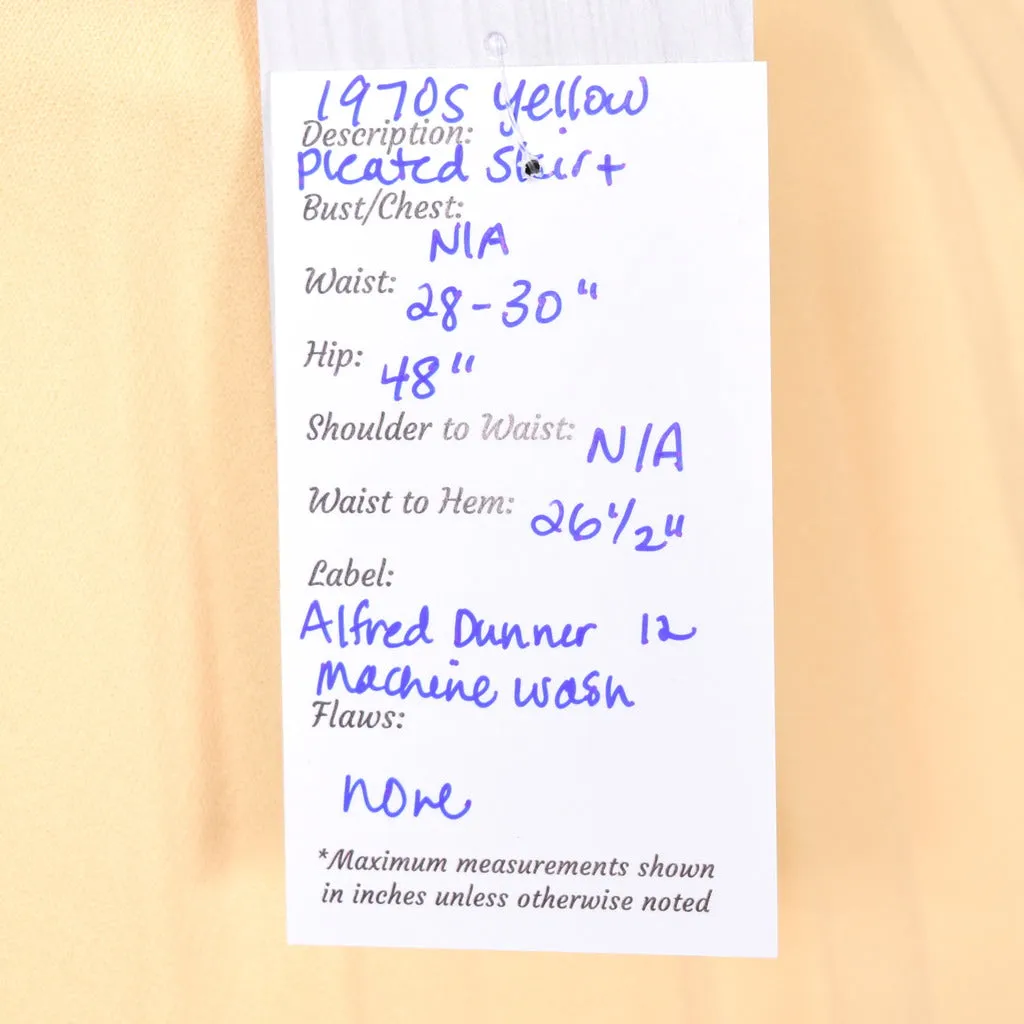 1970s Yellow
Description:
Pleated Skirt
Bust/Chest:
N/A
Waist: 28-30"
Hip: 48"
Shoulder to Waist: N/A
Waist to Hem: 26 1/2"
Label:
Alfred Dunner 12
Machine Wash
Flaws:
none
*Maximum measurements shown
in inches unless otherwise noted